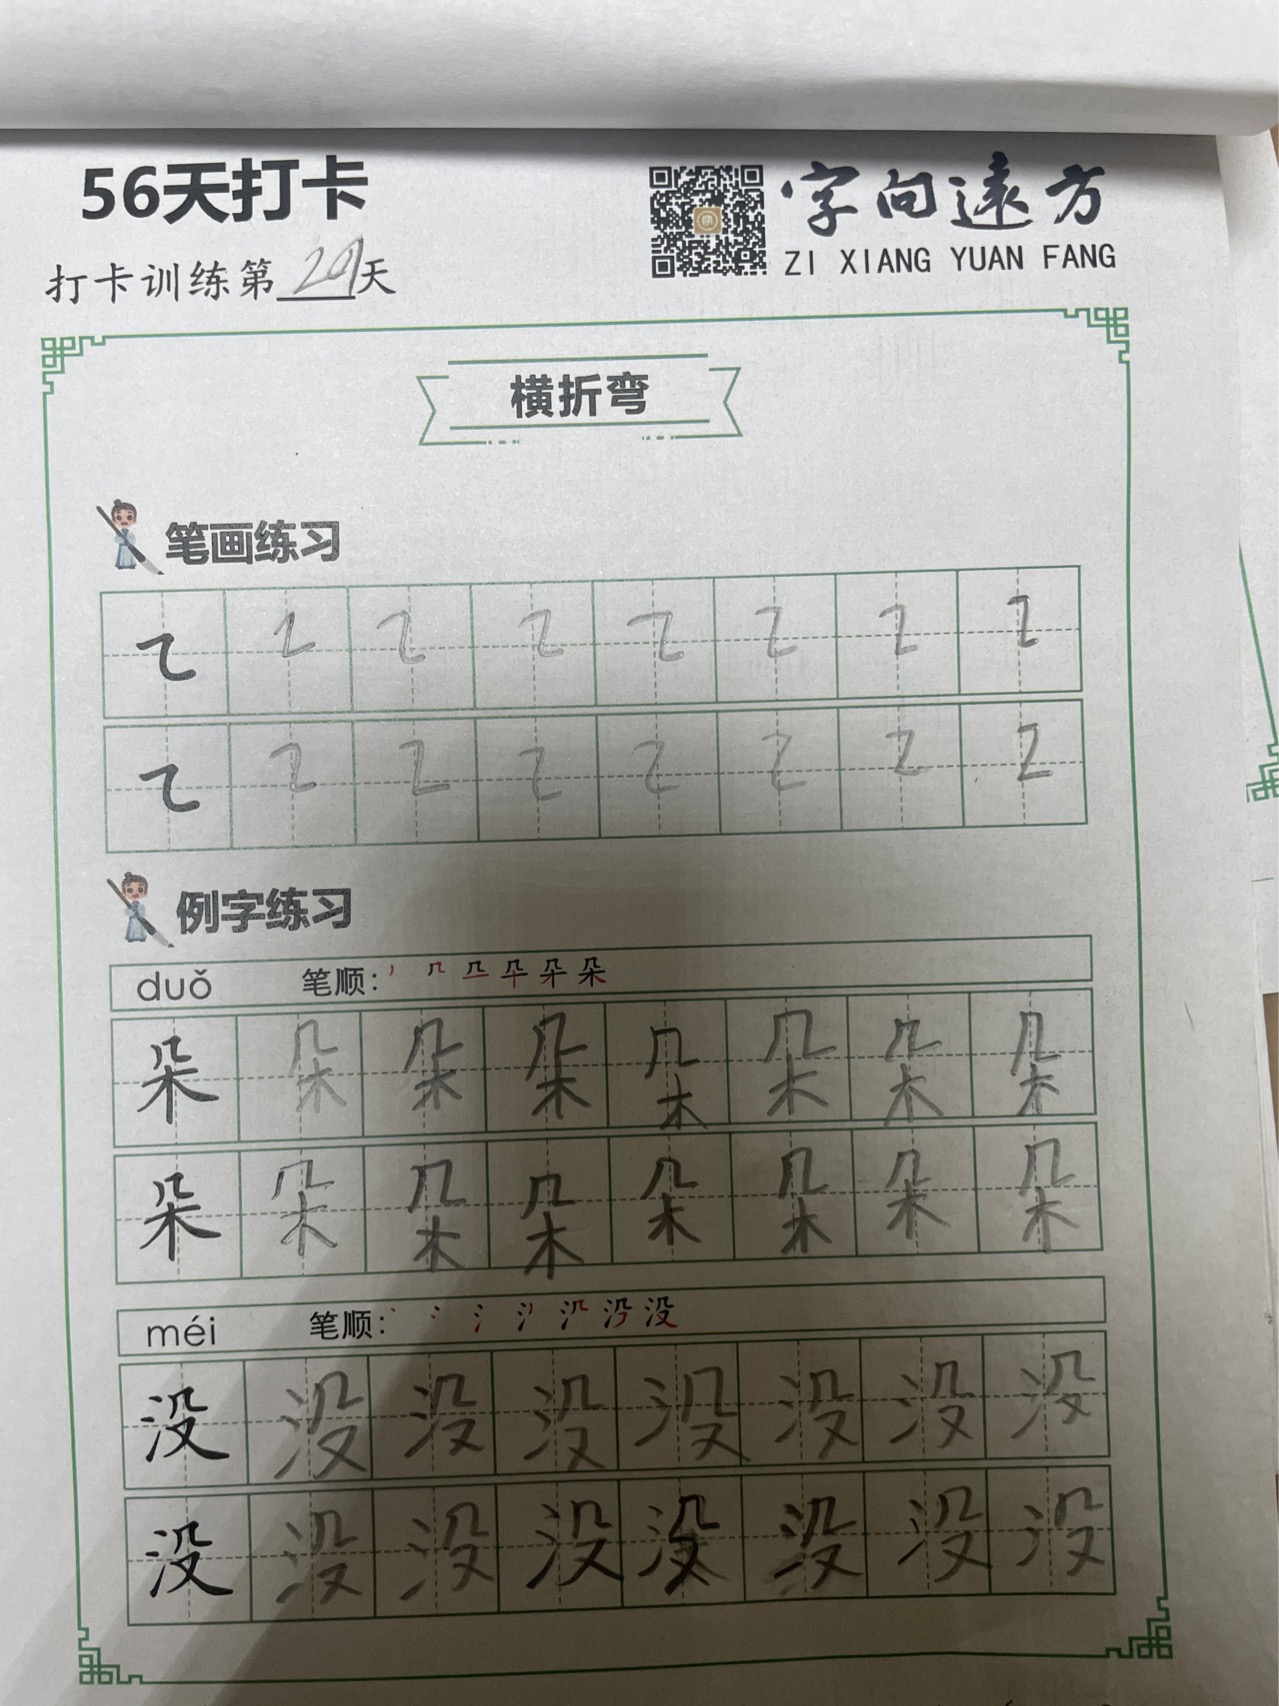 56天打卡
字向遠方
ZI XIANG YUAN FANG
打卡训练第29天
横折弯
笔画练习
例字练习
duǒ 笔顺：
朵 朵 朵 朵 朵 朵 朵 朵
朵 朵 朵 朵 朵 朵 朵 朵
méi 笔顺：
没 没 没 没 没 没 没 没
没 没 没 没 没 没 没 没